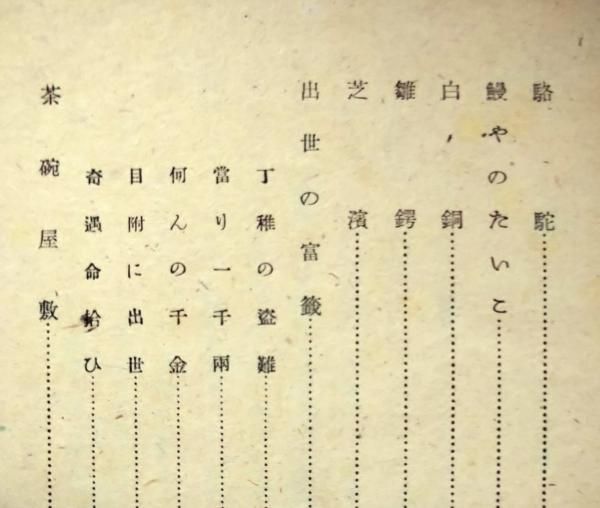 駱駝
鰻やのたいこ
白銅
雛鍔
芝濱
出世の富籤
丁稚の盜難
當り一千兩
何んの千金
目附に出世
奇遇命拾ひ
茶碗屋敷